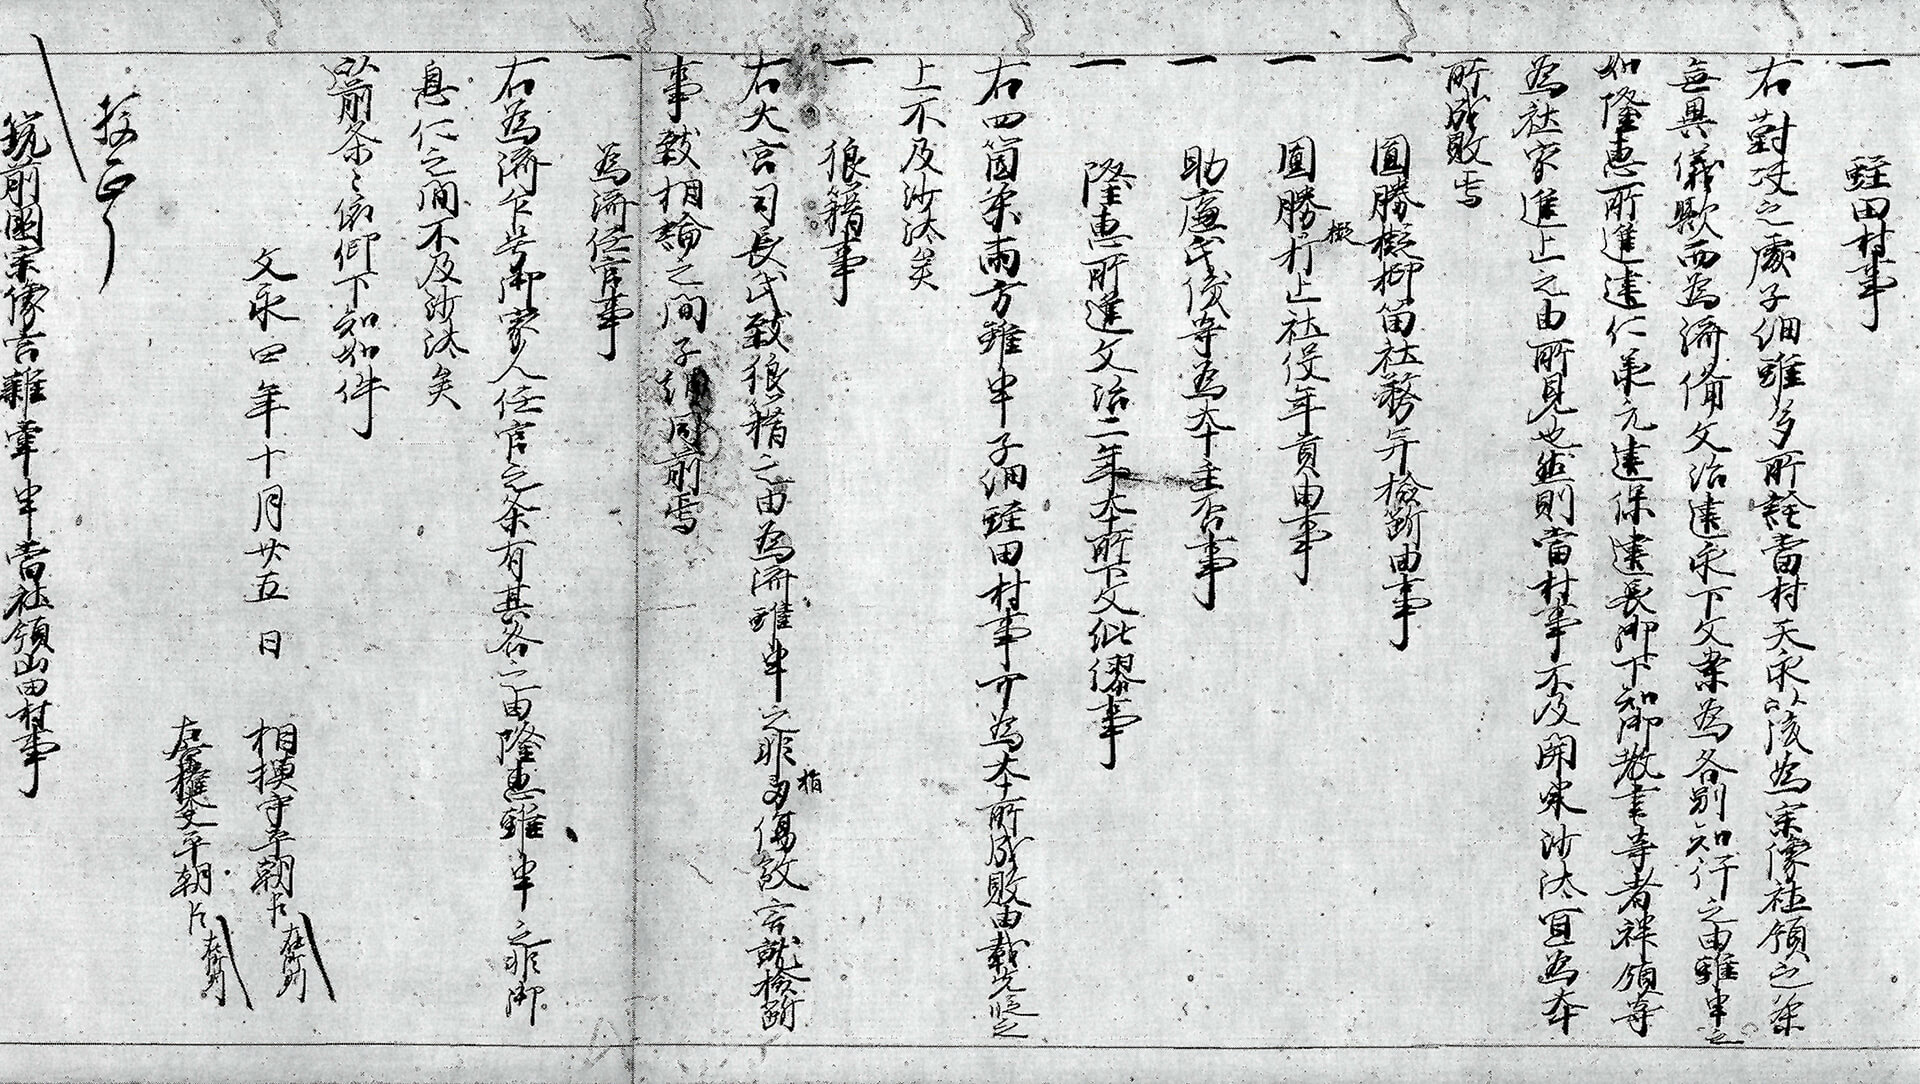 一 蛭田村事
右對决之處子細雖多所詮當村天承以後為宗像社領之条
無異儀歟而為済備文治建永下文案為各別知行之由雖申之
如隆恵所進建仁承元建保建長御下知御教書等者裡領等
為社家進止之由所見也然則當村事不及開柴沙汰宜為本
所成敗焉
一 圓勝擬柳笛社務并検断由事
一 圓勝擬打止社役年貢由事
一 助廣氏俊等為本主否事
一 隆恵所進文治二年本所下文紕繆事
右四箇条両方雖申子細蛭田村事可為本所成敗由載先段之
上不及沙汰矣
一 狼籍事
右大宮司長氏致狼籍之由為済雖申之非指傷敵害就検断
事致相論之間子細同前焉
一 為済任官事
右為済乍号御家人任官之条有其咎之由隆恵雖申之非御
息仁之間不及沙汰矣
以前条々依仰下知如件
文永四年十月廿五日
相模守平朝臣 在御判
左京権大夫平朝臣 在御判
校正了
筑前國宗像吉雑掌申當社領山田村事